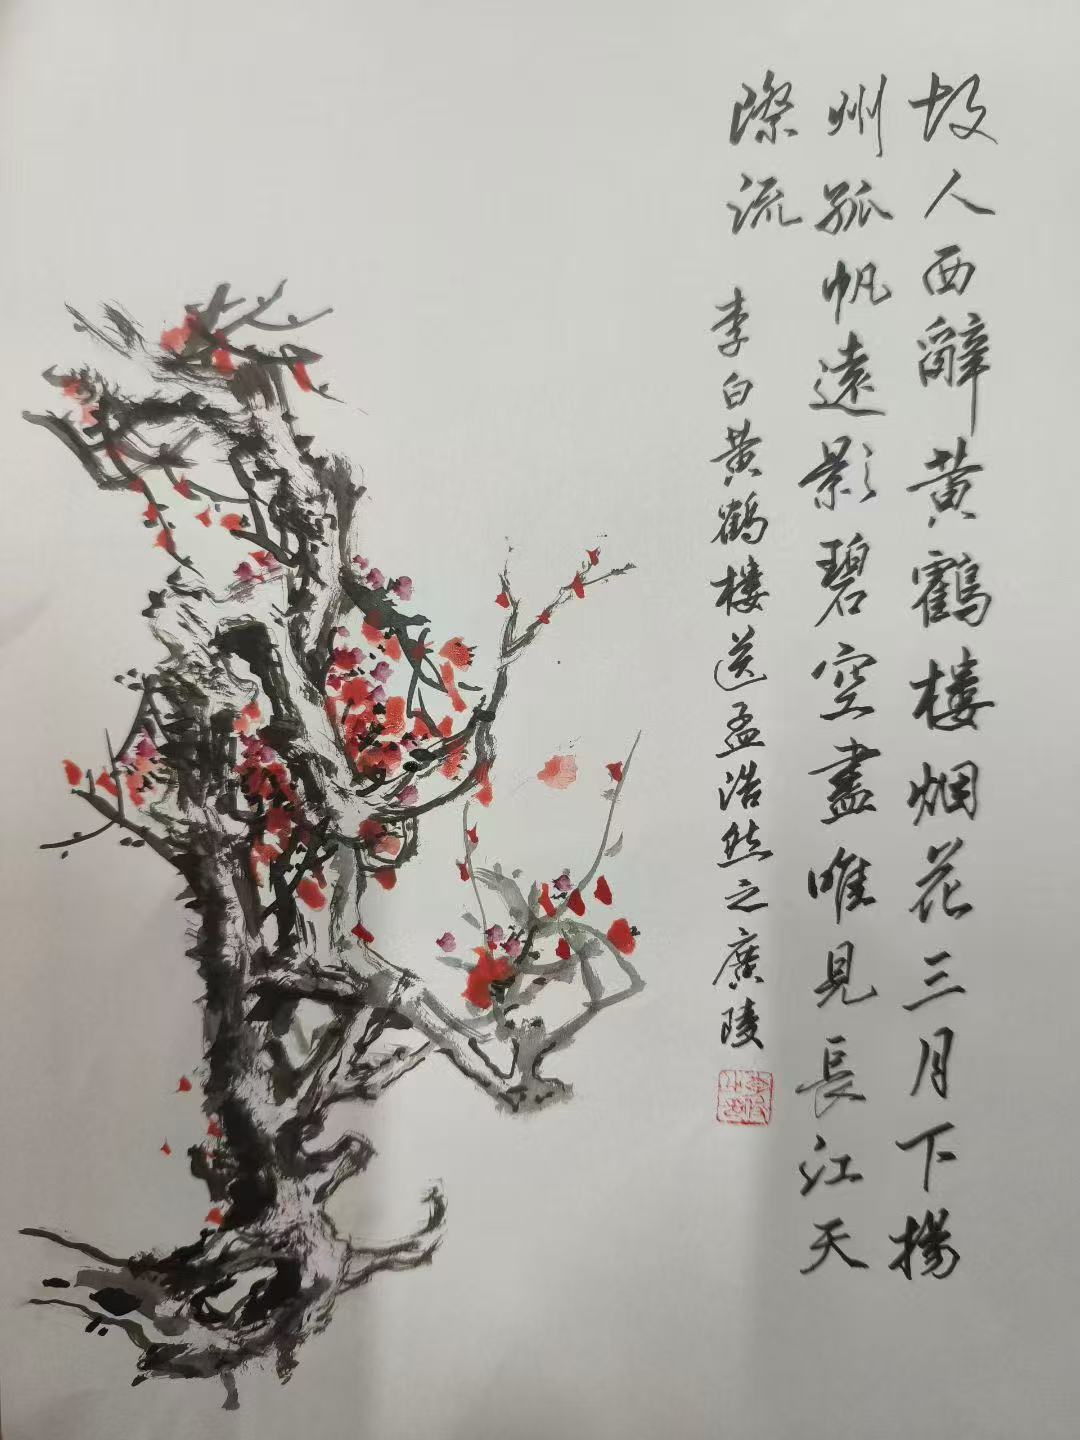 故人西辭黄鶴樓烟花三月下揚
州孤帆遠影碧空盡唯見長江天
際流
李白黄鶴樓送孟浩然之廣陵